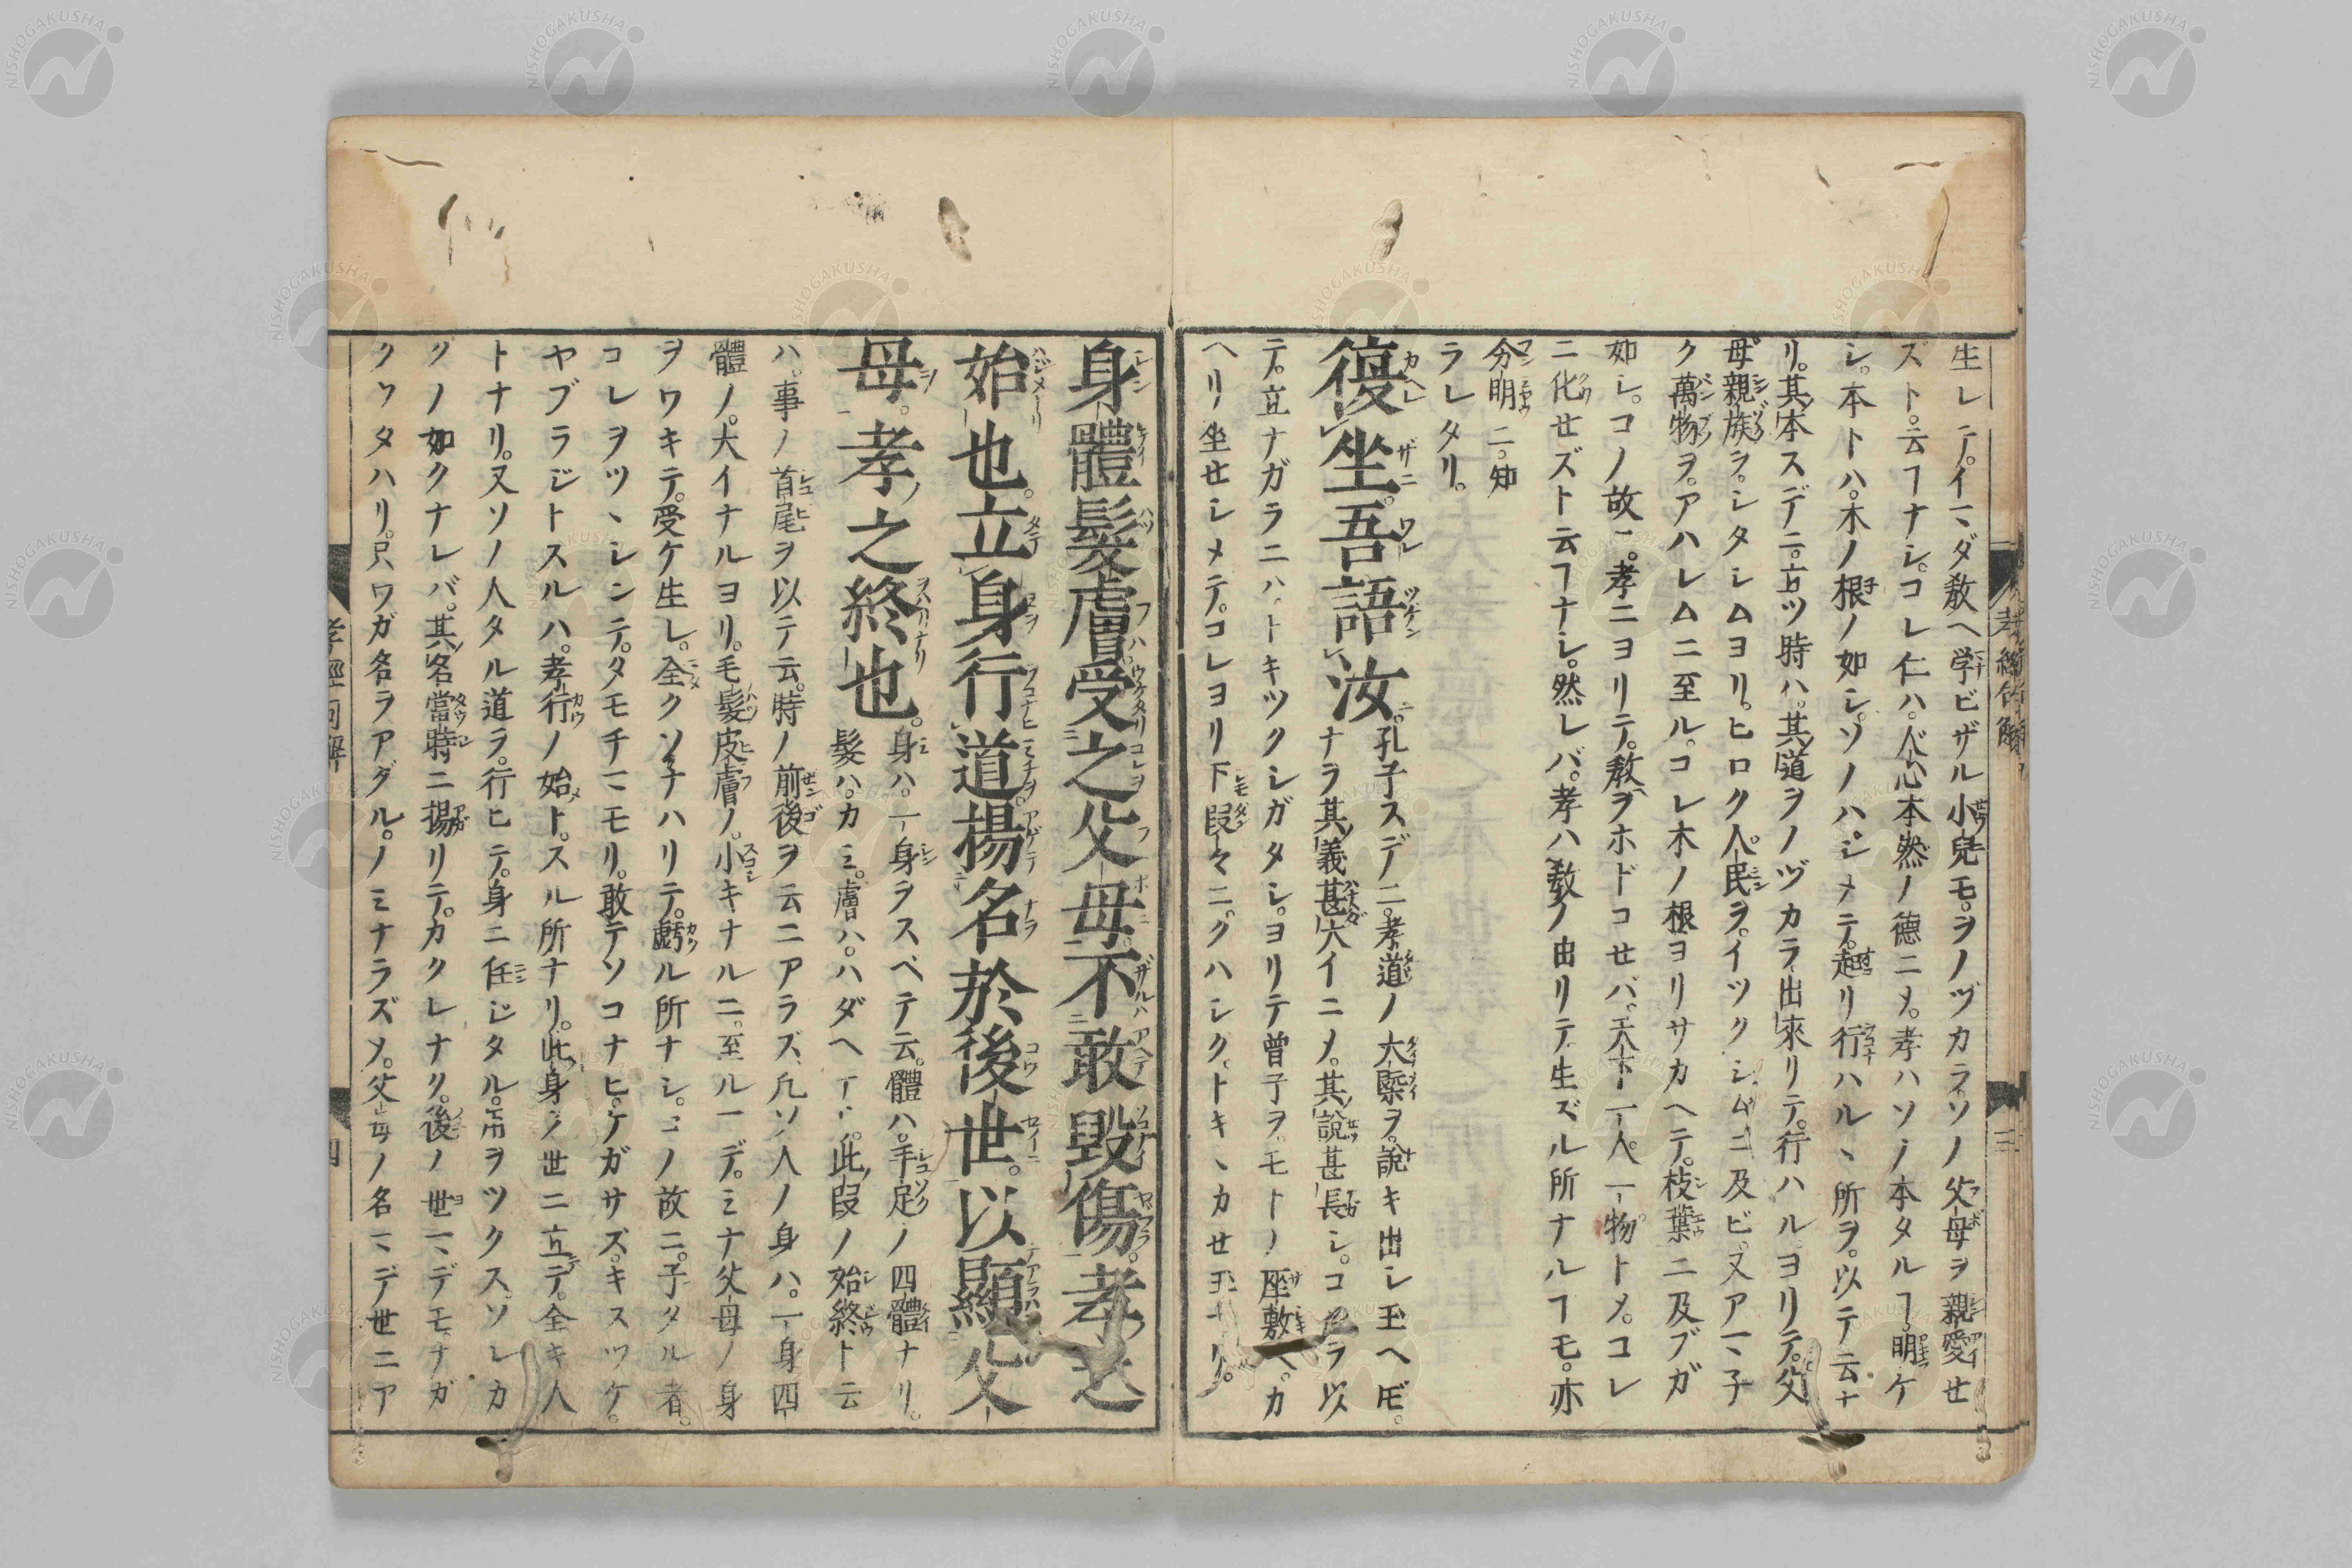 生レテ。イマダ教ヘ学ビザル小兒モ。ヲノヅカラソノ父母ヲ親愛セ
ズト。云ヿナシ。コレ仁ハ。人心本然ノ德ニメ。孝ハソノ本タルヿ。明ケ
シ。本トハ。木ノ根ノ如シ。ソノハジメテ。起リ行ハルヽ所ヲ。以テ云ナ
リ。其本スデニ。立ツ時ハ。其道ヲノヅカラ出來リテ。行ハルヨリテ。父
母親族ヲ。シタシムヨリ。ヒロク人民ヲ。イツクシムニ及ビ。又アマヽ子
ク萬物ヲ。アハレムニ至ル。コレ木ノ根ヨリサカヘテ。枝葉ニ及ブガ
如シ。コノ故ニ。孝ニヨリテ。教ヲホドコセバ。天下一人一物トメ。コレ
ニ化セズト云ヿナシ。然レバ。孝ハ教ノ由リテ生ズル所ナルヿモ。亦
分明ニ。知
ラレタリ。
復坐。吾語汝。孔子スデニ。孝道ノ大槩ヲ。說キ出シ玉ヘドモ。
ナラ其義甚大イニメ。其說甚長シ。コ ラ以
テ。立ナガラニハ。トキツクシガタシ。ヨリテ曾子ヲ。モトノ座敷ヘ。カ
ヘリ坐セシメテ。コレヨリ下段々ニ。クハシク。トキヽカセ玉
身體髮膚受之父母。不敢毀傷。孝之
始也。立身行道。揚名於後世。以顯父
母。孝之終也。身ハ。一身ヲスベテ云。體ハ。手足ノ四體ナリ。
髮ハ。カミ。膚ハ。ハダヘ 此段ノ始終ト云
ハ。事ノ首尾ヲ以テ云。時ノ前後ヲ云ニアラズ、凡ソ人ノ身ハ。一身四
體ノ。大イナルヨリ。毛髮皮膚ノ。小キナルニ。至ルマデ。ミナ父母ノ身
ヲワキテ。受ケ生レ。全クソナハリテ。虧ル所ナシ。コノ故ニ。子タル者。
コレヲツヽシンデ。タモチマモリ。敢テソコナヒ。ケガサズ。キスツケ。
ヤブラジトスルハ。孝行ノ始ト。スル所ナリ。此身ヲ世ニ立テ。全キ人
トナリ。又ソノ人タル道ヲ。行ヒテ。身ニ任ジタル。 ヲツクスソレカ
クノ如クナレバ。其名當時ニ揚リテ。カクレナク。後ノ世マデモ。ナガ
クツタハリ。只ワガ名ヲアグル。ノミナラズメ。父母ノ名マデ世ニア
孝經句解
三
孝經句解
四